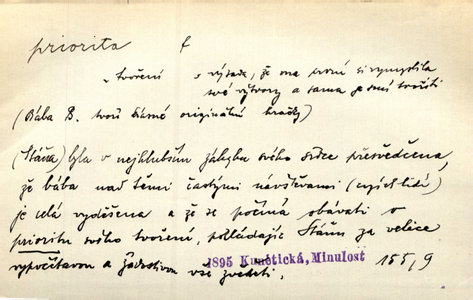 priorita f
„ tvoření „ výsada, že ona první si vymyslila
své výtvory a sama je smí tvořiti
(Bába B. tvoří krásné originální hračky)
(Stáza) byla v nejhlubším záhybu svého srdce přesvědčena,
že bába nad těmi častými návštěvami (cizích lidí)
je celá vyděšena a že se počíná obávati o
prioritu svého tvoření, pokládajíc Stázu za velice
vypočítavou a žádostivou vše zvěděti.
1895 Kunětická, Minulost 155/9